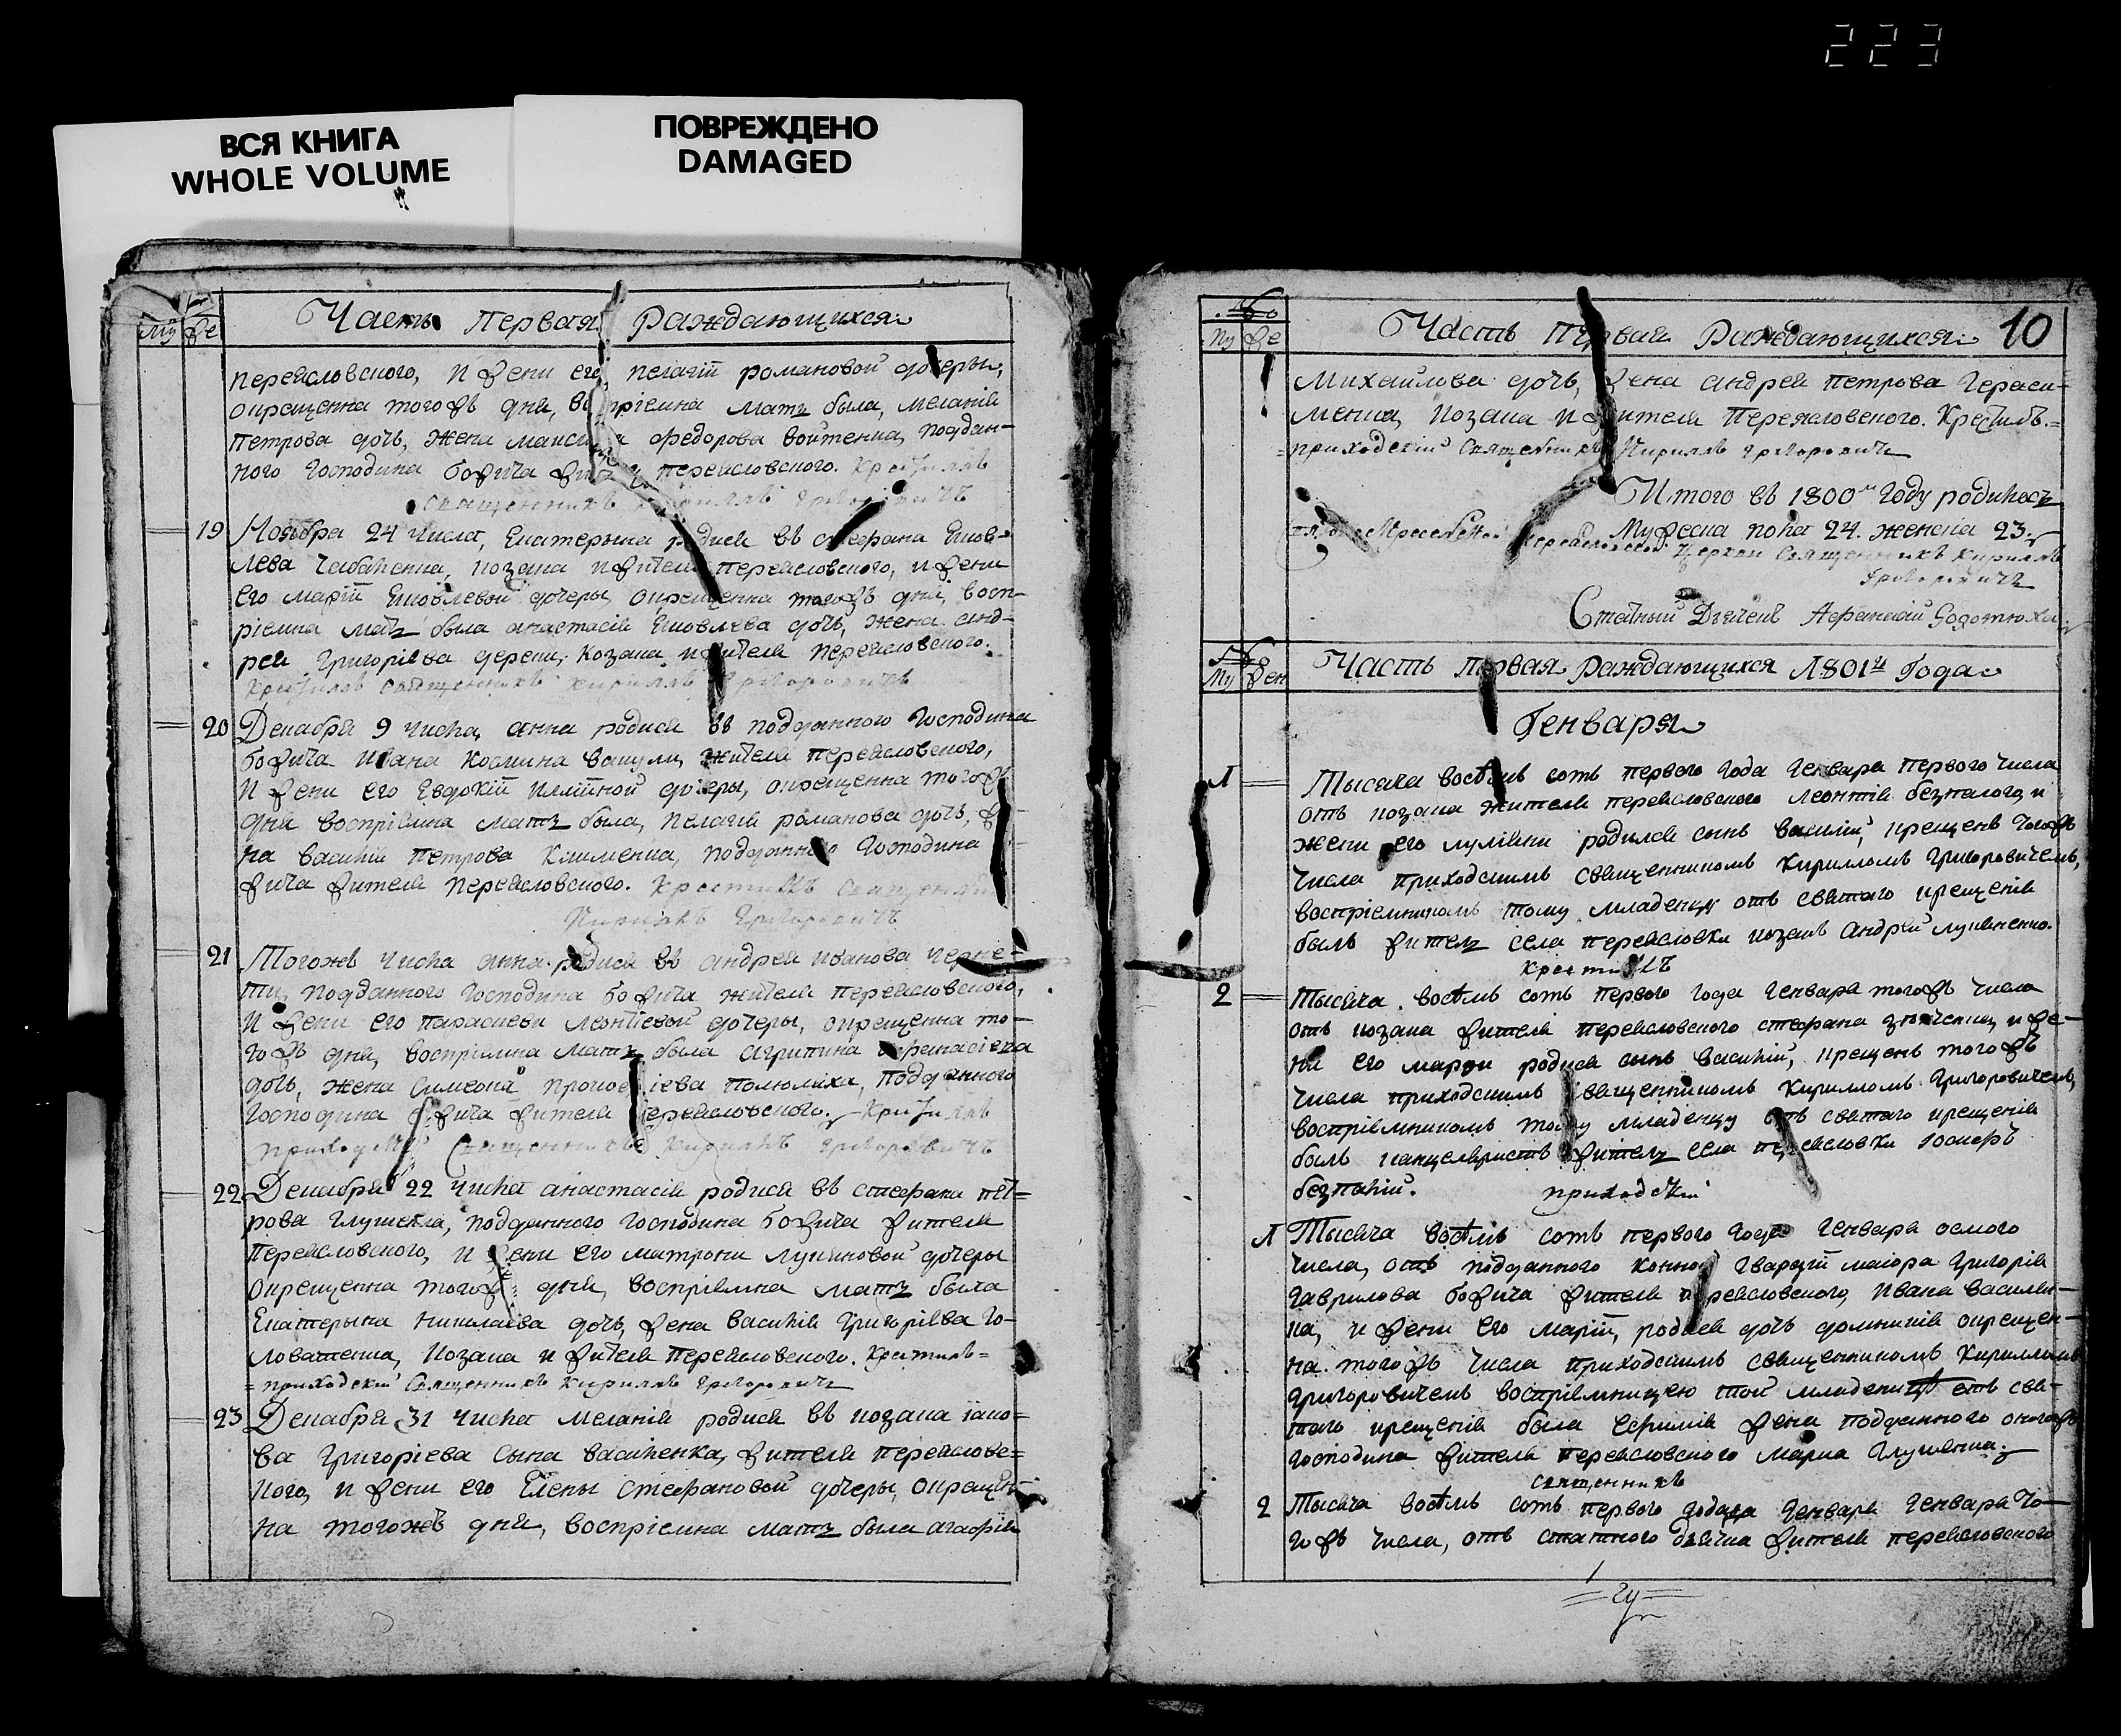 223
ВСЯ КНИГА
WHOLE VOLUME
ПОВРЕЖДЕНО
DAMAGED
Му Же
Часть Первая Раждающихся
переясловского, и жени его, пелагіи романовой дочеры,
окрещенна тогожъ дня, воспріемна мать была, меланія
петрова дочь, жена федорова войтенка, поддан-
ного Господина божича переясловского. Крестилъ
Священникъ Кириллъ Григоровичъ
19 Ноября 24 числа, Екатерына родися въ стефана Яков-
лева козака и жителя переясловского, и жени
его маріи Яковлевой дочеры, окрещенна тогожъ дня, восп-
ріемна мать была анастасія Яковлева дочь, жена анд-
рея Григоріева козака и жителя переясловского.
Крестилъ Священникъ Кириллъ Григоровичъ
20 Декабря 9 числа, анна родися въ подданного Господина
божича Ивана Космина жителя переясловского,
и жени его Евдокіи дочеры, окрещенна тогожъ
дня воспріемна мать была, пелагія романова дочь, же
на василія петрова Клименка, подданного Господина
жича жителя переясловского. Крестилъ Священникъ
Кириллъ Григоровичъ
21 Тогожъ числа анна родися въ андрея иванова
подданного Господина божича жителя переясловского,
и жени его параскеви леонтіевой дочеры, окрещенна то-
гожъ дня, воспріемна мать была агрипина афанасіева
дочь, жена Симеона подданного
Господина божича жителя переясловского. Крестилъ
приходскій Священникъ Кириллъ Григоровичъ
22 Декабря 22 числа анастасія родися въ стефана пет=
рова глущенка, подданного Господина божича жителя
переясловского, и жени его матрони дочеры
окрещенна тогожъ дня, воспріемна мать была
Екатерына Николаева дочь, жена василія Григоріева Го-
ловатенка, козака и жителя переясловского. Крестилъ=
=приходскій Священникъ Кириллъ Григоровичъ
23 Декабря 31 числа меланія родися въ козака іако=
ва Григоріева сына василенка, жителя переяслов=
ного, и жени его Елены стефановой дочеры, окрещен
на тогожъ дня, воспріемна мать была агафія
Му Же
Часть Первая Раждающихся 10
Михайлова дочь, жена андрея петрова Гераси-
менка, козака и жителя Переясловского. Крестилъ=
=приходскій Священникъ Кириллъ Григоровичъ
Итого въ 1800м Году родилось
Мужеска пола 24. женска 23.
церкви Священникъ Кириллъ
Григоровичъ
Статный Дячекъ Афанасій
Му Жен
Часть Первая Раждающихся 1801го Года
Генваря
1 Тысяча восѣмъ сотъ первого Года Генваря первого числа
отъ козака жителя переясловского леонтія безпалого, и
жени его родился сынъ василій, крещенъ тогожъ
числа приходскимъ священникомъ Кирилломъ Григоровичемъ,
воспріемникомъ тому младенцу отъ святаго крещенія
былъ житель села переясловки козакъ андрей
Крестилъ
2 Тысяча восѣмъ сотъ первого Года Генваря тогожъ числа
отъ козака жителя переясловского стефана и же-
ни его марфи родися сынъ василій, крещенъ тогожъ
числа приходскимъ священникомъ Кирилломъ Григоровичемъ,
воспріемникомъ тому младенцу отъ святаго крещенія
былъ канцеляристъ житель села переясловки
безпалій. приходскій
1 Тысяча восѣмъ сотъ первого Года Генваря осмого
числа, отъ подданного Конной Гвардіи маіора Григорія
Гаврилова божича жителя переясловского, Ивана василен-
ка, и жени его маріи, родися дочь домникія окрещен-
на тогожъ числа приходскимъ священникомъ Кирилломъ
Григоровичемъ воспріемницею той младеницѣ отъ свя-
таго крещенія была жена подданного оногожъ
Господина жителя переясловского марка Глущенка.
Священникъ
2 Тысяча восѣмъ сотъ первого года Генваря Генваря То-
гожъ числа, отъ статного дячка жителя переясловского